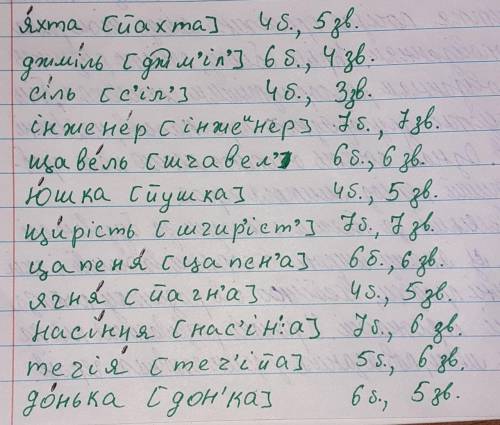 я́хта [йахта] 4 б., 5 зв.
джміль [д͡жм'іл'] 6 б., 4 зв.
сіль [с'іл'] 4 б., 3 зв.
інжене́р [інжеᶦнер] 7 б., 7 зв.
щаве́ль [шчавел'] 6 б., 6 зв.
ю́шка [йушка] 4 б., 5 зв.
щи́рість [шчир'іст'] 7 б., 7 зв.
цапеня́ [цапен'а] 6 б., 6 зв.
ягня́ [йагн'а] 4 б., 5 зв.
насі́ння [нас'ін':а] 7 б., 6 зв.
течія́ [теч'ійа] 5 б., 6 зв.
до́нька [дон'ка] 6 б., 5 зв.